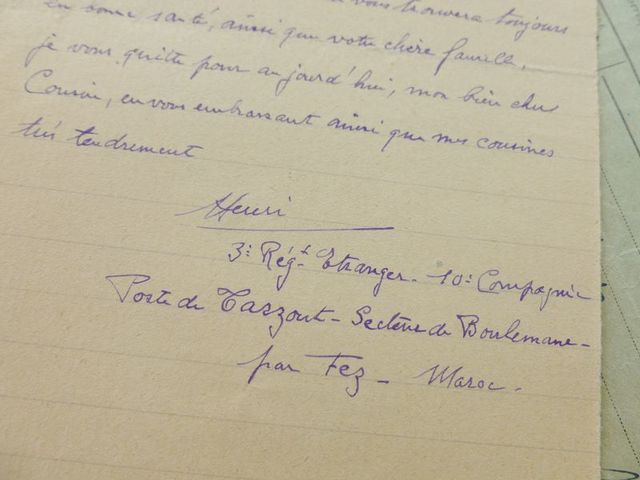 vous trouvera toujours
en bonne santé, ainsi que votre chère famille.
je vous quitte pour aujourd'hui, mon bien cher
Cousin, en vous embrassant ainsi que mes cousines
très tendrement
Henri
3e Régt Etranger - 10e Compagnie
Poste de Tazzout - Secteur de Boulemane -
par Fez - Maroc.